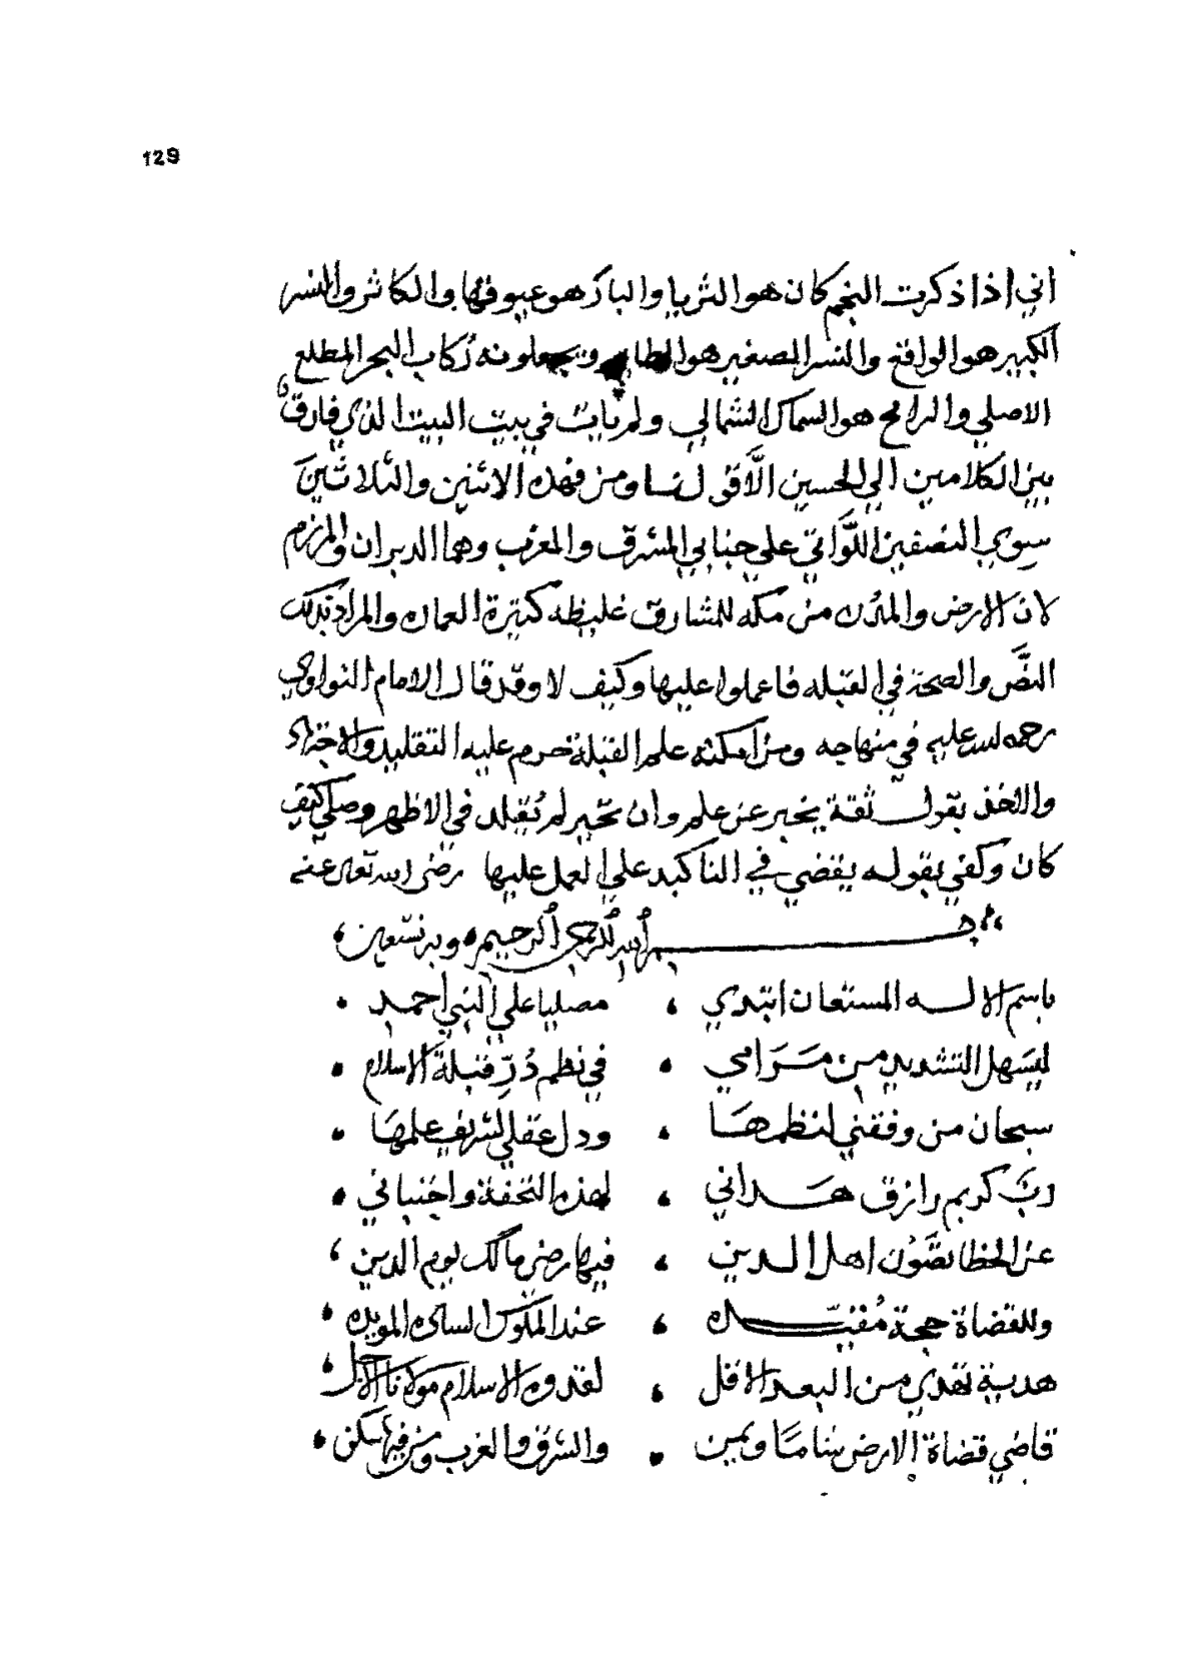 129
اني اذا ذكرت النجم كان هو الثريا والبار هو عيوقها والكاثر والنسر
الكبير هو الواقع والنسر الصغير هو الطاير ويجعلونه ركاب البحر المطلع
الاصلي والرامح هو السماك الشمالي ولم يات في بيت البيت الذي فارق
بين الكلامين الي الحسين الاقوي لنا ومن فهذه الاثنين والثلاثين
سوي النصفين اللواتي علي جنابي المشرق والمغرب وهما الدبران والمرزم
لان الارض والمدن من مكه للمشارق غليظه كثيرة العماره والمراد بذلك
النص والصحة في القبله فاعملوا عليها وكيف لا وقد قال الامام النواوي
رحمه الله عليه في منهاجه ومن امكنه علم القبلة حرم عليه التقليد والاجتهاد
والاخذ بقول ثقة يخبر عن علم وان تحير لم يقلد في الاظهر وصلي كيف
كان وكفي بقوله يقضي في التاكيد علي العمل عليها رضي الله تعالي عنه
بسم الله الرحمن الرحيم وبه نستعين
باسم الاله المستعان ابتدي ، مصليا علي النبي احمد
ليسهل التشديد من مرامي ، في نظم در قبلة الاسلام
سبحان من وفقني لنظمها ، ودل عقلي لشريف علمها
رب كريم رازق هداني ، لهذه التحفة واجتباني
عن الخطا تصون اهل الدين ، فيها رضي مالك يوم الدين
وللقضاة حجة مفيده ، عند الملوك الساده المويده
هدية تهدي من العبد الاقل ، لقدوه الاسلام مولانا الاجل
قاضي قضاة الارض شاما ويمن ، والشرق والغرب ومن فيها سكن